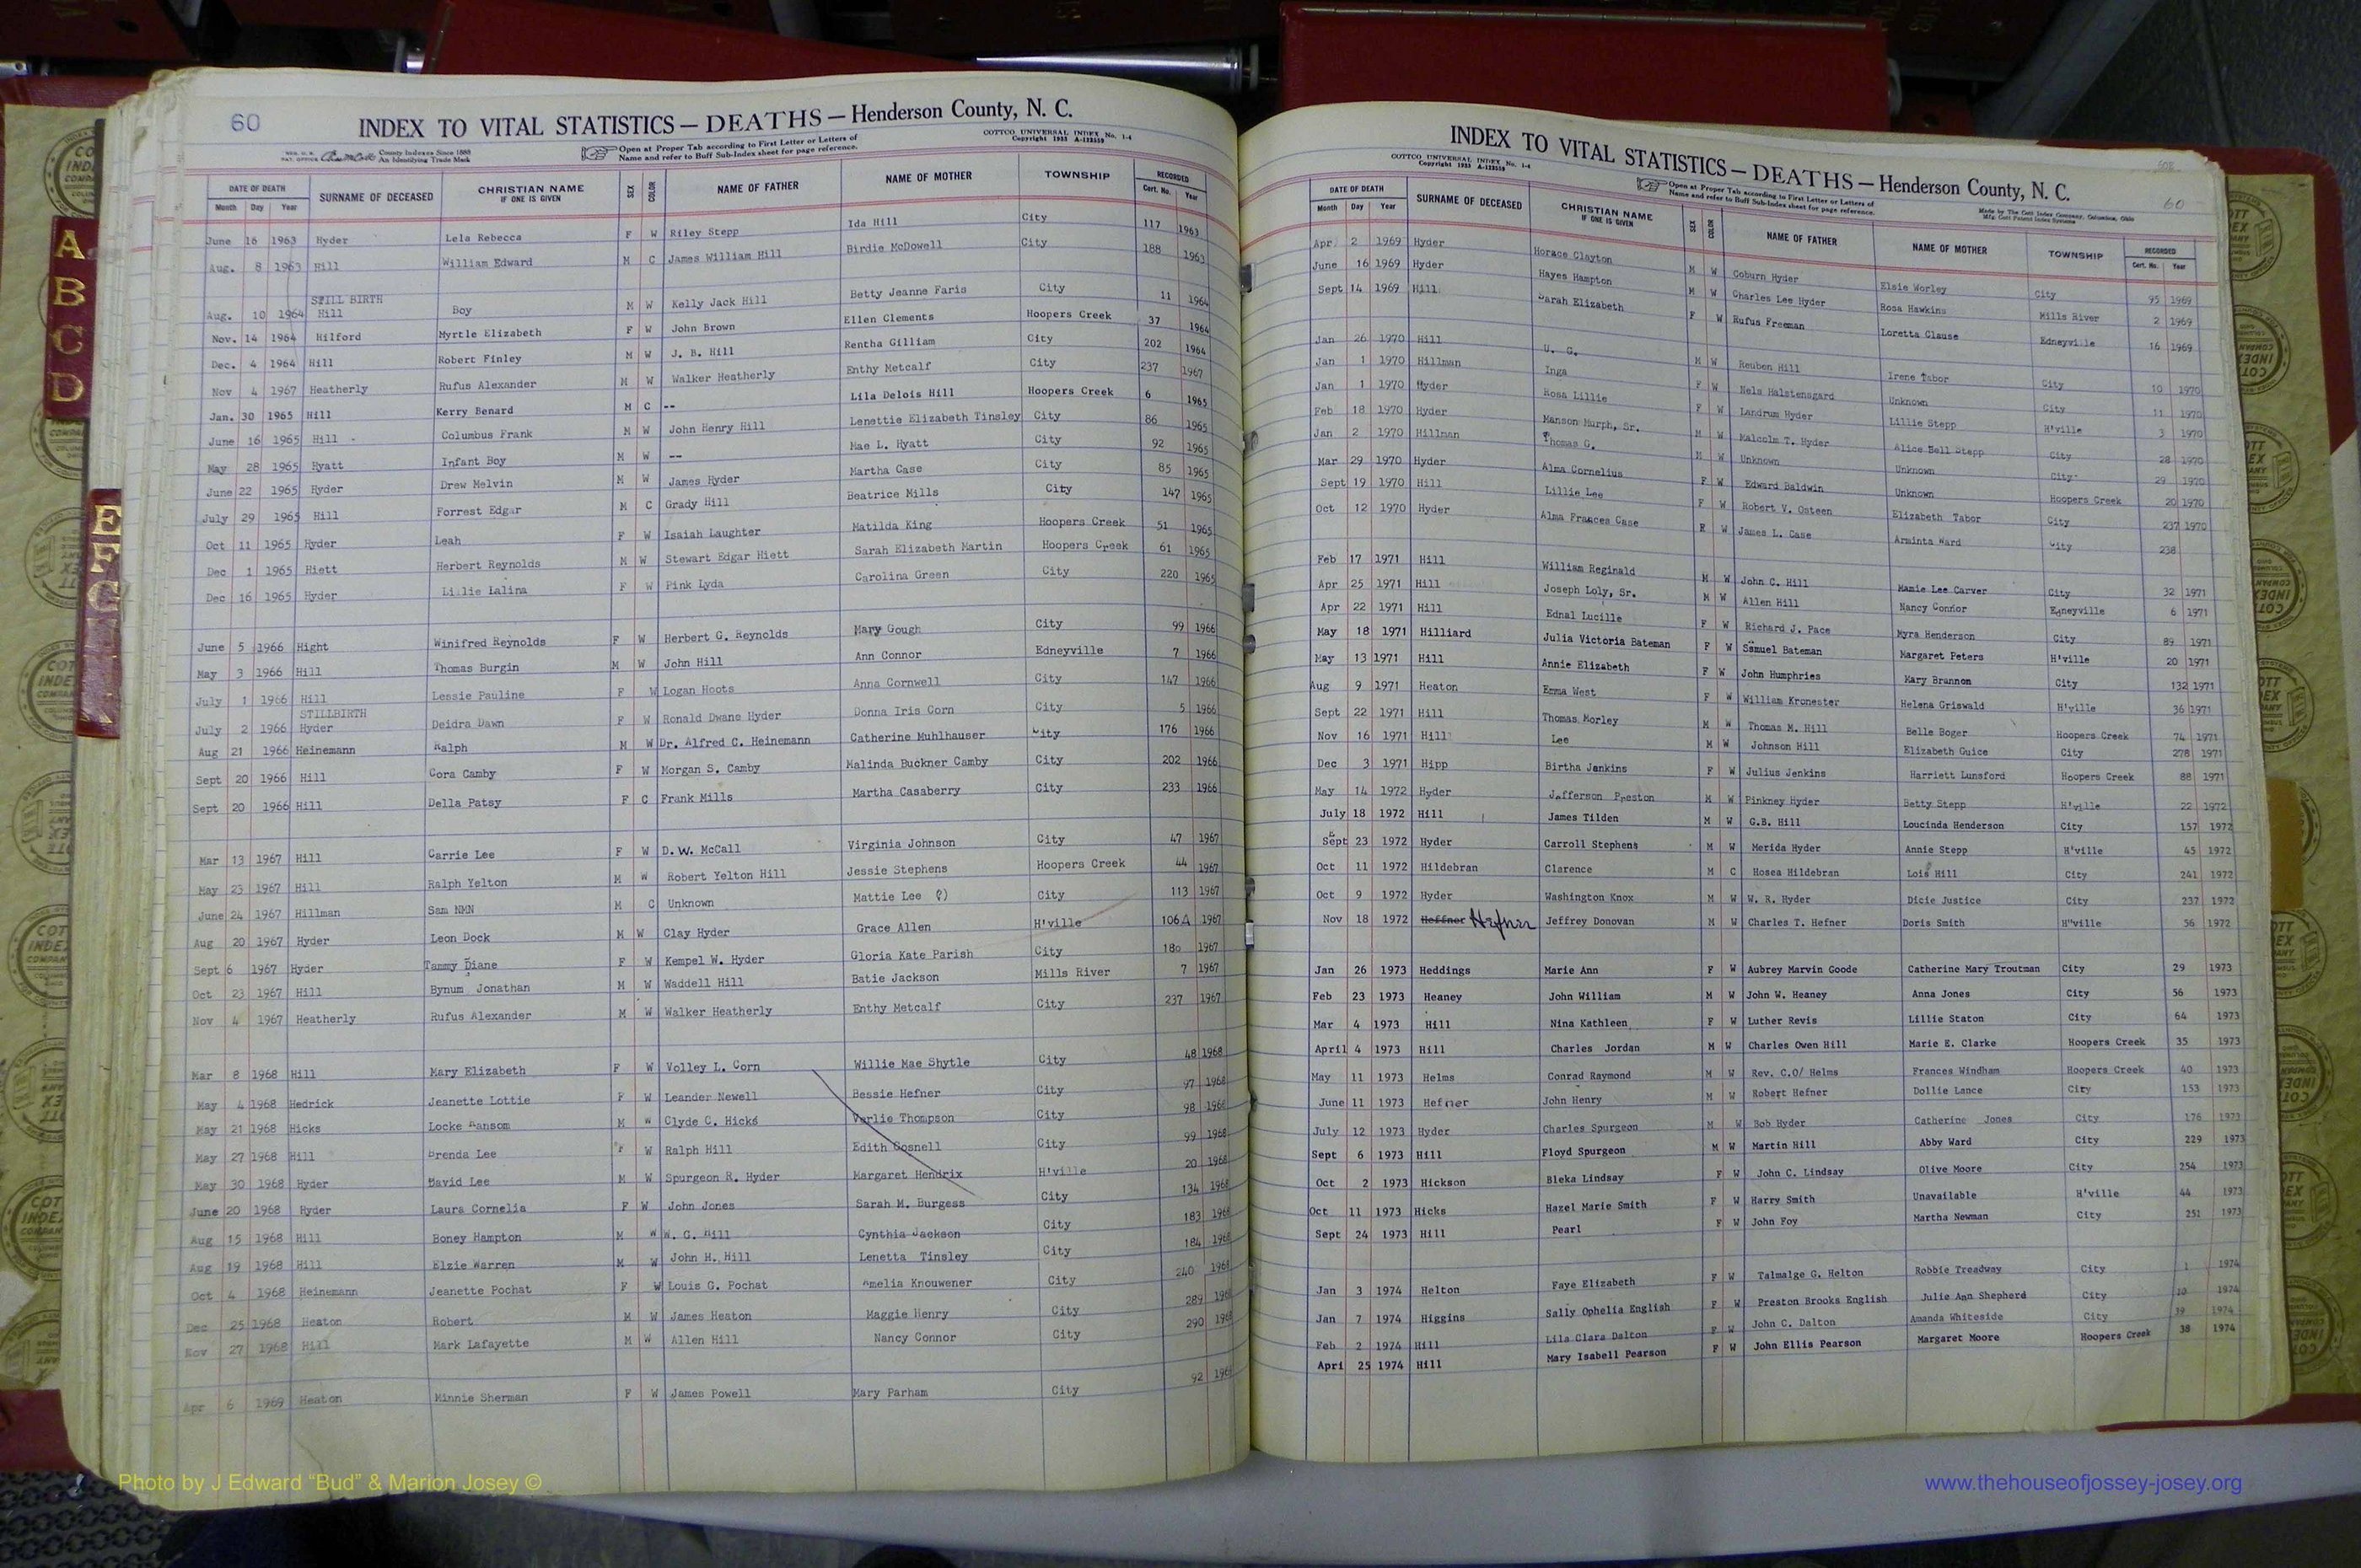 60
INDEX TO VITAL STATISTICS — DEATHS — Henderson County, N. C.
REG. U. S. PAT. OFFICE County Indexes Since 1888 An Identifying Trade Mark
Open at Proper Tab according to First Letter or Letters of Name and refer to Buff Sub-Index sheet for page reference.
COTTCO UNIVERSAL INDEX No. 1-4 Copyright 1933 A-123559
DATE OF DEATH Month Day Year SURNAME OF DECEASED CHRISTIAN NAME IF ONE IS GIVEN SEX COLOR NAME OF FATHER NAME OF MOTHER TOWNSHIP RECORDED Cert. No. Year
June 16 1963 Hyder Lela Rebecca F W Riley Stepp Ida Hill City 117 1963
Aug. 8 1963 Hill William Edward M C James William Hill Birdie McDowell City 188 1963
STILL BIRTH
Aug. 10 1964 Hill Boy M W Kelly Jack Hill Betty Jeanne Faris City 11 1964
Nov. 14 1964 Hilford Myrtle Elizabeth F W John Brown Ellen Clements Hoopers Creek 37 1964
Dec. 4 1964 Hill Robert Finley M W J. B. Hill Rentha Gilliam City 202 1964
Nov 4 1967 Heatherly Rufus Alexander M W Walker Heatherly Enthy Metcalf City 237 1967
Jan. 30 1965 Hill Kerry Benard M C -- Lila Delois Hill Hoopers Creek 6 1965
June 16 1965 Hill Columbus Frank M W John Henry Hill Lenettie Elizabeth Tinsley City 86 1965
May 28 1965 Hyatt Infant Boy M W -- Mae L. Hyatt City 92 1965
June 22 1965 Hyder Drew Melvin M W James Hyder Martha Case City 85 1965
July 29 1965 Hill Forrest Edgar M C Grady Hill Beatrice Mills City 147 1965
Oct 11 1965 Hyder Leah F W Isaiah Laughter Matilda King Hoopers Creek 51 1965
Dec 1 1965 Hiett Herbert Reynolds M W Stewart Edgar Hiett Sarah Elizabeth Martin Hoopers Creek 61 1965
Dec 16 1965 Hyder Lillie Lalina F W Pink Lyda Carolina Green City 220 1965
June 5 1966 Hight Winifred Reynolds F W Herbert G. Reynolds Mary Gough City 99 1966
May 3 1966 Hill Thomas Burgin M W John Hill Ann Connor Edneyville 7 1966
July 1 1966 Hill Lessie Pauline F W Logan Hoots Anna Cornwell City 147 1966
STILLBIRTH
July 2 1966 Hyder Deidra Dawn F W Ronald Dwane Hyder Donna Iris Corn City 5 1966
Aug 21 1966 Heinemann Ralph M W Dr. Alfred C. Heinemann Catherine Muhlhauser City 176 1966
Sept 20 1966 Hill Cora Camby F W Morgan S. Camby Malinda Buckner Camby City 202 1966
Sept 20 1966 Hill Della Patsy F C Frank Mills Martha Casaberry City 233 1966
Mar 13 1967 Hill Carrie Lee F W D. W. McCall Virginia Johnson City 47 1967
May 23 1967 Hill Ralph Yelton M W Robert Yelton Hill Jessie Stephens Hoopers Creek 44 1967
June 24 1967 Hillman Sam NMN M C Unknown Mattie Lee (?) City 113 1967
Aug 20 1967 Hyder Leon Dock M W Clay Hyder Grace Allen H'ville 106A 1967
Sept 6 1967 Hyder Tammy Diane F W Kempel W. Hyder Gloria Kate Parish City 180 1967
Oct 23 1967 Hill Bynum Jonathan M W Waddell Hill Batie Jackson Mills River 7 1967
Nov 4 1967 Heatherly Rufus Alexander M W Walker Heatherly Enthy Metcalf City 237 1967
Mar 8 1968 Hill Mary Elizabeth F W Volley L. Corn Willie Mae Shytle City 48 1968
May 4 1968 Hedrick Jeanette Lottie F W Leander Newell Bessie Hefner City 97 1968
May 21 1968 Hicks Locke Ransom M W Clyde C. Hicks Verlie Thompson City 98 1968
May 27 1968 Hill Brenda Lee F W Ralph Hill Edith Gosnell City 99 1968
May 30 1968 Hyder David Lee M W Spurgeon R. Hyder Margaret Hendrix H'ville 20 1968
June 20 1968 Hyder Laura Cornelia F W John Jones Sarah M. Burgess City 134 1968
Aug 15 1968 Hill Boney Hampton M W W. G. Hill Cynthia Jackson City 183 1968
Aug 19 1968 Hill Elzie Warren M W John H. Hill Lenetta Tinsley City 184 1968
Oct 4 1968 Heinemann Jeanette Pochat F W Louis G. Pochat Amelia Knouwener City 240 1968
Dec 25 1968 Heaton Robert M W James Heaton Maggie Henry City 289 196
Nov 27 1968 Hill Mark Lafayette M W Allen Hill Nancy Connor City 290 196
Apr 6 1969 Heaton Minnie Sherman F W James Powell Mary Parham City 92 196
INDEX TO VITAL STATISTICS — DEATHS — Henderson County, N. C.
60
COTTCO UNIVERSAL INDEX No. 1-4 Copyright 1933 A-123559
Open at Proper Tab according to First Letter or Letters of Name and refer to Buff Sub-Index sheet for page reference.
Made by The Cott Index Company, Columbus, Ohio
DATE OF DEATH Month Day Year SURNAME OF DECEASED CHRISTIAN NAME IF ONE IS GIVEN SEX COLOR NAME OF FATHER NAME OF MOTHER TOWNSHIP RECORDED Cert. No. Year
Apr 2 1969 Hyder Horace Clayton M W Coburn Hyder Elsie Worley City 95 1969
June 16 1969 Hyder Hayes Hampton M W Charles Lee Hyder Rosa Hawkins Mills River 2 1969
Sept 14 1969 Hill Sarah Elizabeth F W Rufus Freeman Loretta Clause Edneyville 16 1969
Jan 26 1970 Hill U. G. M W Reuben Hill Irene Tabor City 10 1970
Jan 1 1970 Hillman Inga F W Nels Halstensgard Unknown City 11 1970
Jan 1 1970 Hyder Rosa Lillie F W Landrum Hyder Lillie Stepp H'ville 3 1970
Feb 18 1970 Hyder Manson Murph, Sr. M W Malcolm T. Hyder Alice Bell Stepp City 28 1970
Jan 2 1970 Hillman Thomas G. M W Unknown Unknown City 29 1970
Mar 29 1970 Hyder Alma Cornelius F W Edward Baldwin Unknown Hoopers Creek 20 1970
Sept 19 1970 Hill Lillie Lee F W Robert V. Osteen Elizabeth Tabor City 237 1970
Oct 12 1970 Hyder Alma Frances Case F W James L. Case Arminta Ward City 238
Feb 17 1971 Hill William Reginald M W John C. Hill Mamie Lee Carver City 32 1971
Apr 25 1971 Hill Joseph Loly, Sr. M W Allen Hill Nancy Connor Edneyville 6 1971
Apr 22 1971 Hill Ednal Lucille F W Richard J. Pace Myra Henderson City 89 1971
May 18 1971 Hilliard Julia Victoria Bateman F W Samuel Bateman Margaret Peters H'ville 20 1971
May 13 1971 Hill Annie Elizabeth F W John Humphries Mary Brannon City 132 1971
Aug 9 1971 Heaton Emma West F W William Kronester Helena Griswald H'ville 36 1971
Sept 22 1971 Hill Thomas Morley M W Thomas M. Hill Belle Boger Hoopers Creek 74 1971
Nov 16 1971 Hill Lee M W Johnson Hill Elizabeth Guice City 278 1971
Dec 3 1971 Hipp Birtha Jenkins F W Julius Jenkins Harriett Lunsford Hoopers Creek 88 1971
May 14 1972 Hyder Jefferson Preston M W Pinkney Hyder Betty Stepp H'ville 22 1972
July 18 1972 Hill James Tilden M W G.B. Hill Loucinda Henderson City 157 1972
Sept 23 1972 Hyder Carroll Stephens M W Merida Hyder Annie Stepp H'ville 45 1972
Oct 11 1972 Hildebran Clarence M C Hosea Hildebran Lois Hill City 241 1972
Oct 9 1972 Hyder Washington Knox M W W. R. Hyder Dicie Justice City 237 1972
Nov 18 1972 Heffner Hefner Jeffrey Donovan M W Charles T. Hefner Doris Smith H"ville 56 1972
Jan 26 1973 Heddings Marie Ann F W Aubrey Marvin Goode Catherine Mary Troutman City 29 1973
Feb 23 1973 Heaney John William M W John W. Heaney Anna Jones City 56 1973
Mar 4 1973 Hill Nina Kathleen F W Luther Revis Lillie Staton City 64 1973
April 4 1973 Hill Charles Jordan M W Charles Owen Hill Marie E. Clarke Hoopers Creek 35 1973
May 11 1973 Helms Conrad Raymond M W Rev. C.O/ Helms Frances Windham Hoopers Creek 40 1973
June 11 1973 Hefner John Henry M W Robert Hefner Dollie Lance City 153 1973
July 12 1973 Hyder Charles Spurgeon M W Bob Hyder Catherine Jones City 176 1973
Sept 6 1973 Hill Floyd Spurgeon M W Martin Hill Abby Ward City 229 1973
Oct 2 1973 Hickson Bleka Lindsay F W John C. Lindsay Olive Moore City 254 1973
Oct 11 1973 Hicks Hazel Marie Smith F W Harry Smith Unavailable H'ville 44 1973
Sept 24 1973 Hill Pearl F W John Foy Martha Newman City 251 1973
Jan 3 1974 Helton Faye Elizabeth F W Talmalge G. Helton Robbie Treadway City 1 1974
Jan 7 1974 Higgins Sally Ophelia English F W Preston Brooks English Julie Ann Shepherd City 10 1974
Feb 2 1974 Hill Lila Clara Dalton F W John C. Dalton Amanda Whiteside City 39 1974
April 25 1974 Hill Mary Isabell Pearson F W John Ellis Pearson Margaret Moore Hoopers Creek 38 1974
A
B
C
D
E
F
G
Photo by J Edward “Bud” & Marion Josey ©
www.thehouseofjossey-josey.org